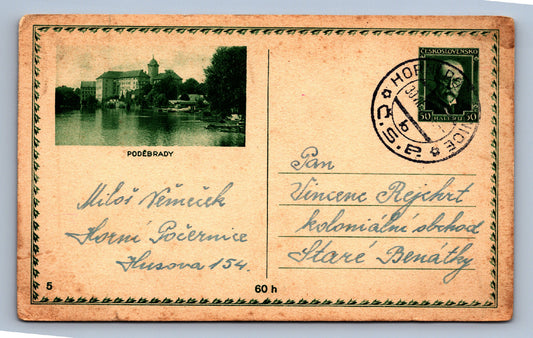 ČESKOSLOVENSKO
50 HALÉŘŮ 50
HOR
Č.S.P.
PODĚBRADY
Miloš Němeček
Horní Počernice
Husova 154.
Pan
Vincenc Rejchrt
koloniální obchod
Staré Benátky
5
60 h